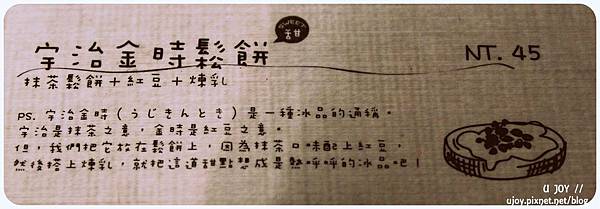 宇治金時鬆餅 SWEET 甜 NT. 45
抹茶鬆餅+紅豆+煉乳
PS. 宇治金時(うじきんとき)是一種冰品的通稱。
宇治是抹茶之意,金時是紅豆之意。
但,我們把它放在鬆餅上,因為抹茶口味配上紅豆,
然後搭上煉乳,就把這道甜點想成是熱呼呼的冰品吧!
U JOY //
ujoy.pixnet.net/blog